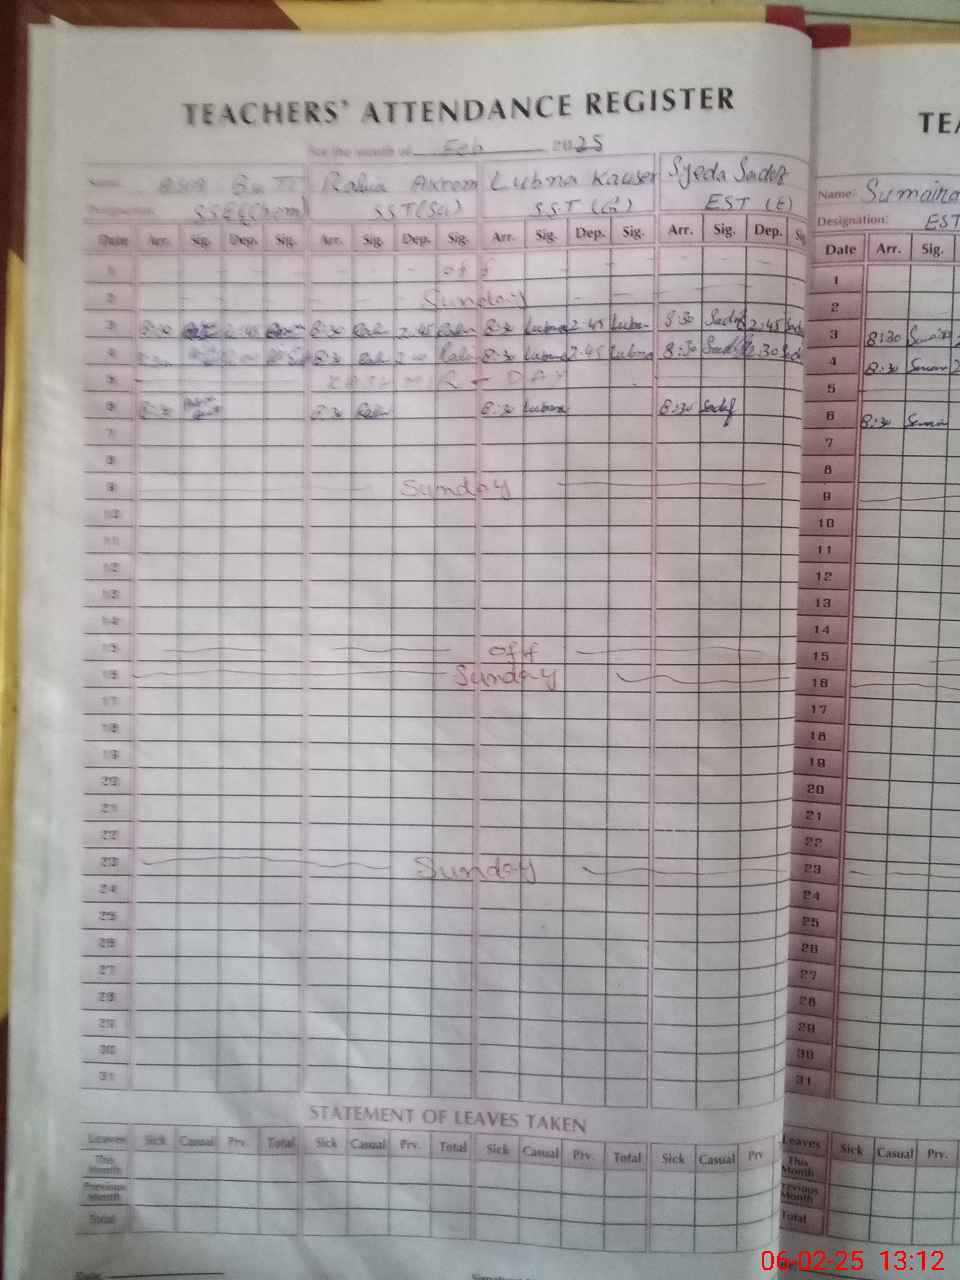 TEACHERS' ATTENDANCE REGISTER
For the month of Feb 2025
Name: Rabia Akram Lubna Kauser Syeda Sadaf
Designation: SST (Sci) SST (G) EST (E)
Date Arr. Sig. Dep. Sig. Arr. Sig. Dep. Sig. Arr. Sig. Dep. Sig. Arr. Sig. Dep.
1 off
2 Sunday
3 8:30 2:45 8:30 Rabia 2:45 Rabia 8:30 Lubna 2:45 Lubna 8:30 Sadaf 2:45
4 8:30 8:30 Rabia Rabia 8:30 Lubna 2:45 Lubna 8:30 Sadaf 2:30
5 KASHMIR - DAY
6 8:30 8:30 Rabia 8:30 Lubna 8:30 Sadaf
7
8
9 Sunday
10
11
12
13
14
15 off
16 Sunday
17
18
19
20
21
22
23 Sunday
24
25
26
27
28
29
30
31
STATEMENT OF LEAVES TAKEN
Leaves Sick Casual Prv. Total Sick Casual Prv. Total Sick Casual Prv. Total Sick Casual Prv.
This Month
Previous Month
Total
TEA
Name: Sumaira
Designation: EST
Date Arr. Sig.
1
2
3 8:30
4 8:30
5
6 8:30
7
8
9
10
11
12
13
14
15
16
17
18
19
20
21
22
23
24
25
26
27
28
29
30
31
Leaves Sick Casual Prv.
This Month
Previous Month
Total
06-02-25 13:12